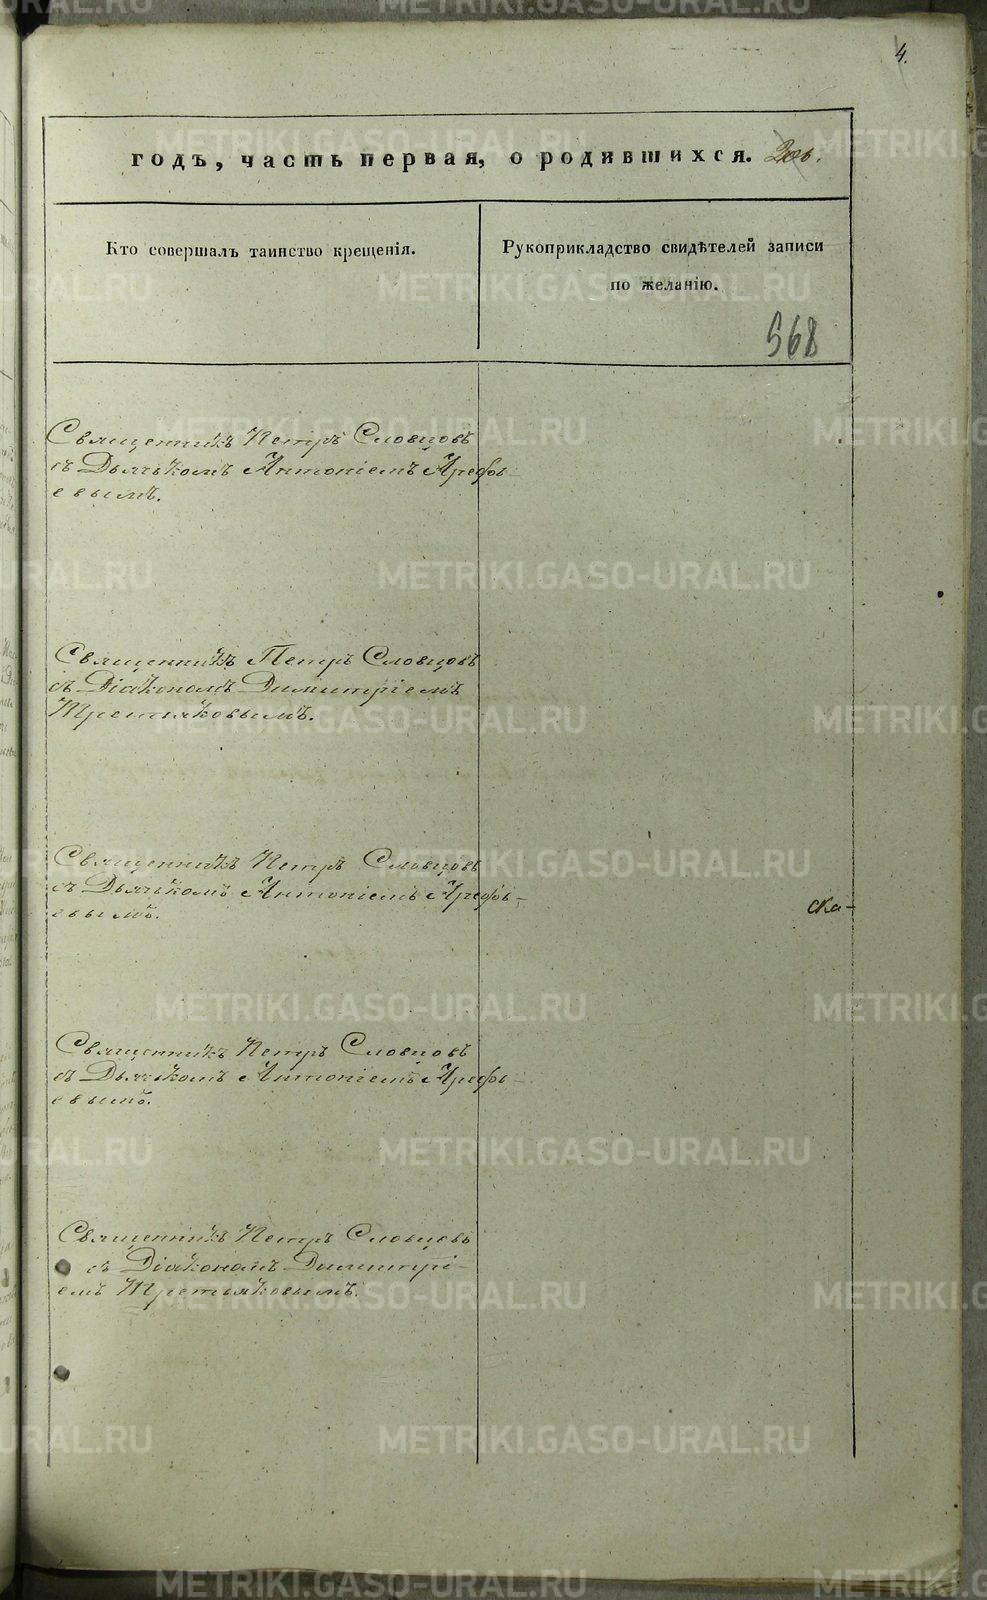 4.
годъ, часть первая, о родившихся.
Кто совершалъ таинство крещенія.
Рукоприкладство свидѣтелей записи
по желанію.
568
Священникъ Петръ Словцовъ
съ Дьячькомъ Антоніемъ Арефь-
евымъ.
Священникъ Петръ Словцовъ
съ Діакономъ Димитріемъ
Третьяковымъ.
Священникъ Петръ Словцовъ
съ Дьячькомъ Антоніемъ Арефь-
евымъ.
ска-
Священникъ Петръ Словцовъ
съ Дьячькомъ Антоніемъ Арефь-
евымъ.
Священникъ Петръ Словцовъ
съ Діакономъ Димитрі-
емъ Третьяковымъ.
METRIKI.GASO-URAL.RU